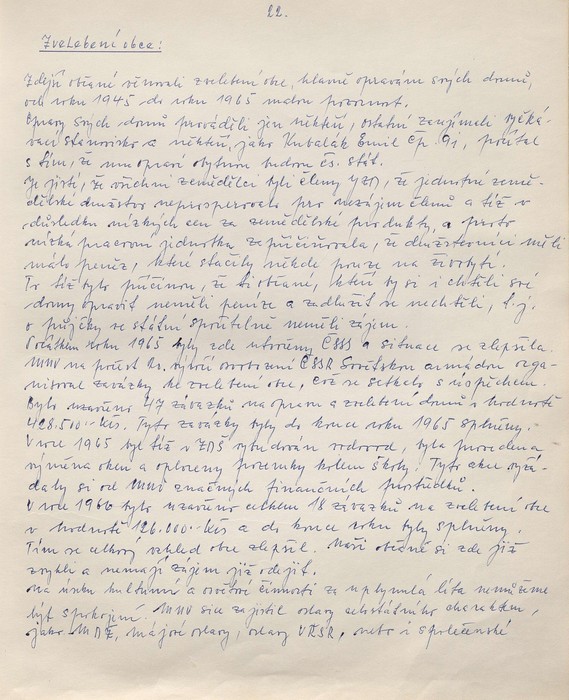 22.
Zvelebení obce:
Zdejší občané věnovali zvelebení obce, hlavně opravám svých domů,
od roku 1945 do roku 1965 malou pozornost.
Opravy svých domů prováděli jen někteří, ostatní zaujímali vyčká-
vací stanovisko a někteří, jako Kubalák Emil čp. 91, počítal
s tím, že mu opraví obytnou budovu čs. stát.
Je jisté, že všichni zemědělci byli členy JZD, že jednotné země-
dělské družstvo neprosperovalo pro nezájem členů a též v
důsledku nízkých cen za zemědělské produkty, a proto
nízká pracovní jednotka zapříčiňovala, že družstevníci měli
málo peněz, které stačily někde pouze na živobytí.
To též bylo příčinou, že ti občané, kteří by si i chtěli své
domy opravit neměli peníze a zadlužit se nechtěli, t.j.
o půjčky ve státní spořitelně neměli zájem.
Počátkem roku 1965 byly zde utvořeny ČSSS a situace se zlepšila.
MNV na počest 20. výročí osvobození ČSSR Sovětskou armádou orga-
nisoval závazky ke zvelebení obce, což se setkalo s úspěchem.
Bylo uzavřeno 47 závazků na opravu a zvelebení domů v hodnotě
428.510.- Kčs. Tyto závazky byly do konce roku 1965 splněny.
V roce 1965 byl též v ZDŠ vybudován vodovod, byla provedena
výměna oken a oploceny pozemky kolem školy. Tyto akce vyžá-
daly si od MNV značných finančních prostředků.
V roce 1966 bylo uzavřeno celkem 18 závazků na zvelebení obce
v hodnotě 126.000.- Kčs a do konce roku byly splněny.
Tím se celkový vzhled obce zlepšil. Naši občané si zde již
zvykli a nemají zájem již odejít.
Na úseku kulturní a osvětové činnosti za uplynulá léta nemůžeme
být spokojeni. MNV sice zajistil oslavy celostátního charakteru,
jako MDŽ, májové oslavy, oslavy VŘSR, nebo i společenské